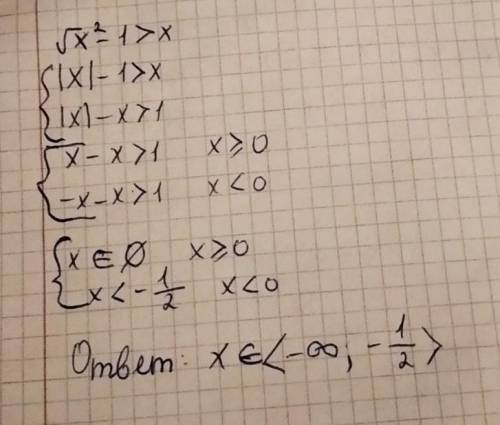 √x² - 1 > x
|x| - 1 > x
|x| - x > 1
x - x > 1 x ≥ 0
-x - x > 1 x < 0
x ∈ ∅ x ≥ 0
x < - 1/2 x < 0
Ответ: x ∈ < -∞ ; - 1/2 >